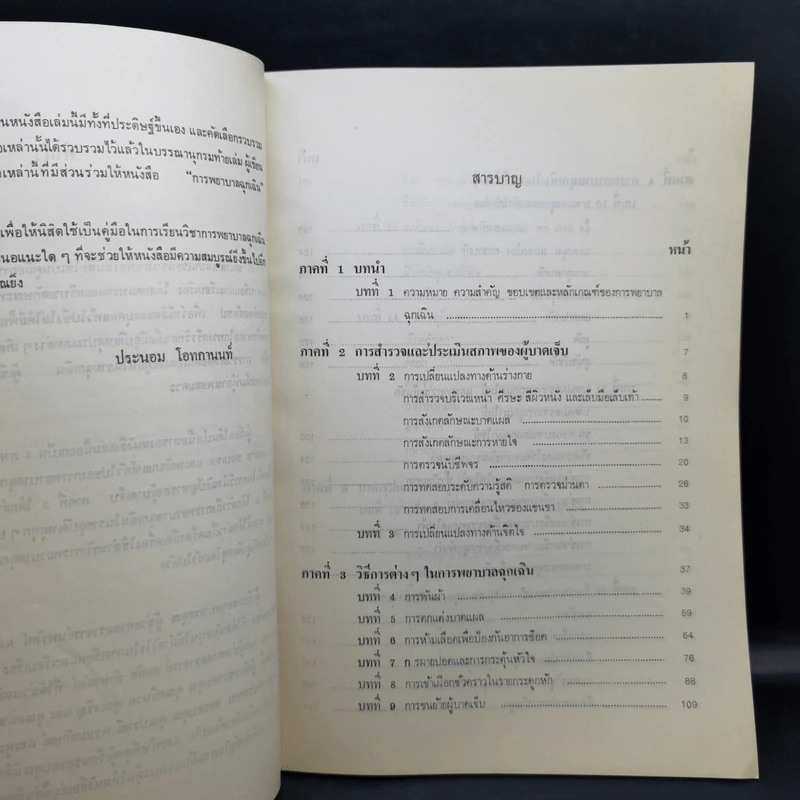 นหนังสือเล่มนี้มีทั้งที่ประดิษฐ์ขึ้นเอง และคัดเลือกรวบรวม
อเหล่านั้นได้รวบรวมไว้แล้วในบรรณานุกรมท้ายเล่ม ผู้เรียน
าเหล่านี้ที่มีส่วนร่วมให้หนังสือ "การพยาบาลฉุกเฉิน"
เพื่อให้นิสิตใช้เป็นคู่มือในการเรียนวิชาการพยาบาลฉุกเฉิน
นอแนะใด ๆ ที่จะช่วยให้หนังสือมีความสมบูรณ์ยิ่งขึ้นไปอีก
ณยิ่ง
ประนอม โอทกานนท์
สารบาญ
หน้า
ภาคที่ 1 บทนำ
บทที่ 1 ความหมาย ความสำคัญ ขอบเขตและหลักเกณฑ์ของการพยาบาล
ฉุกเฉิน 1
ภาคที่ 2 การสำรวจและประเมินสภาพของผู้บาดเจ็บ 7
บทที่ 2 การเปลี่ยนแปลงทางด้านร่างกาย 8
การสำรวจบริเวณหน้า ศีรษะ สีผิวหนัง และเล็บมือเล็บเท้า 9
การสังเกตลักษณะบาดแผล 10
การสังเกตลักษณะการหายใจ 13
การตรวจนับชีพจร 20
การทดสอบระดับความรู้สติ การตรวจม่านตา 26
การทดสอบการเคลื่อนไหวของแขนขา 33
บทที่ 3 การเปลี่ยนแปลงทางด้านจิตใจ 34
ภาคที่ 3 วิธีการต่าง ๆ ในการพยาบาลฉุกเฉิน 37
บทที่ 4 การพันผ้า 39
บทที่ 5 การตกแต่งบาดแผล 59
บทที่ 6 การห้ามเลือดเพื่อป้องกันอาการช็อค 64
บทที่ 7 ก รผายปอดและการกระตุ้นหัวใจ 76
บทที่ 8 การเข้าเฝือกชั่วคราวในรายกระดูกหัก 88
บทที่ 9 การขนย้ายผู้บาดเจ็บ 109